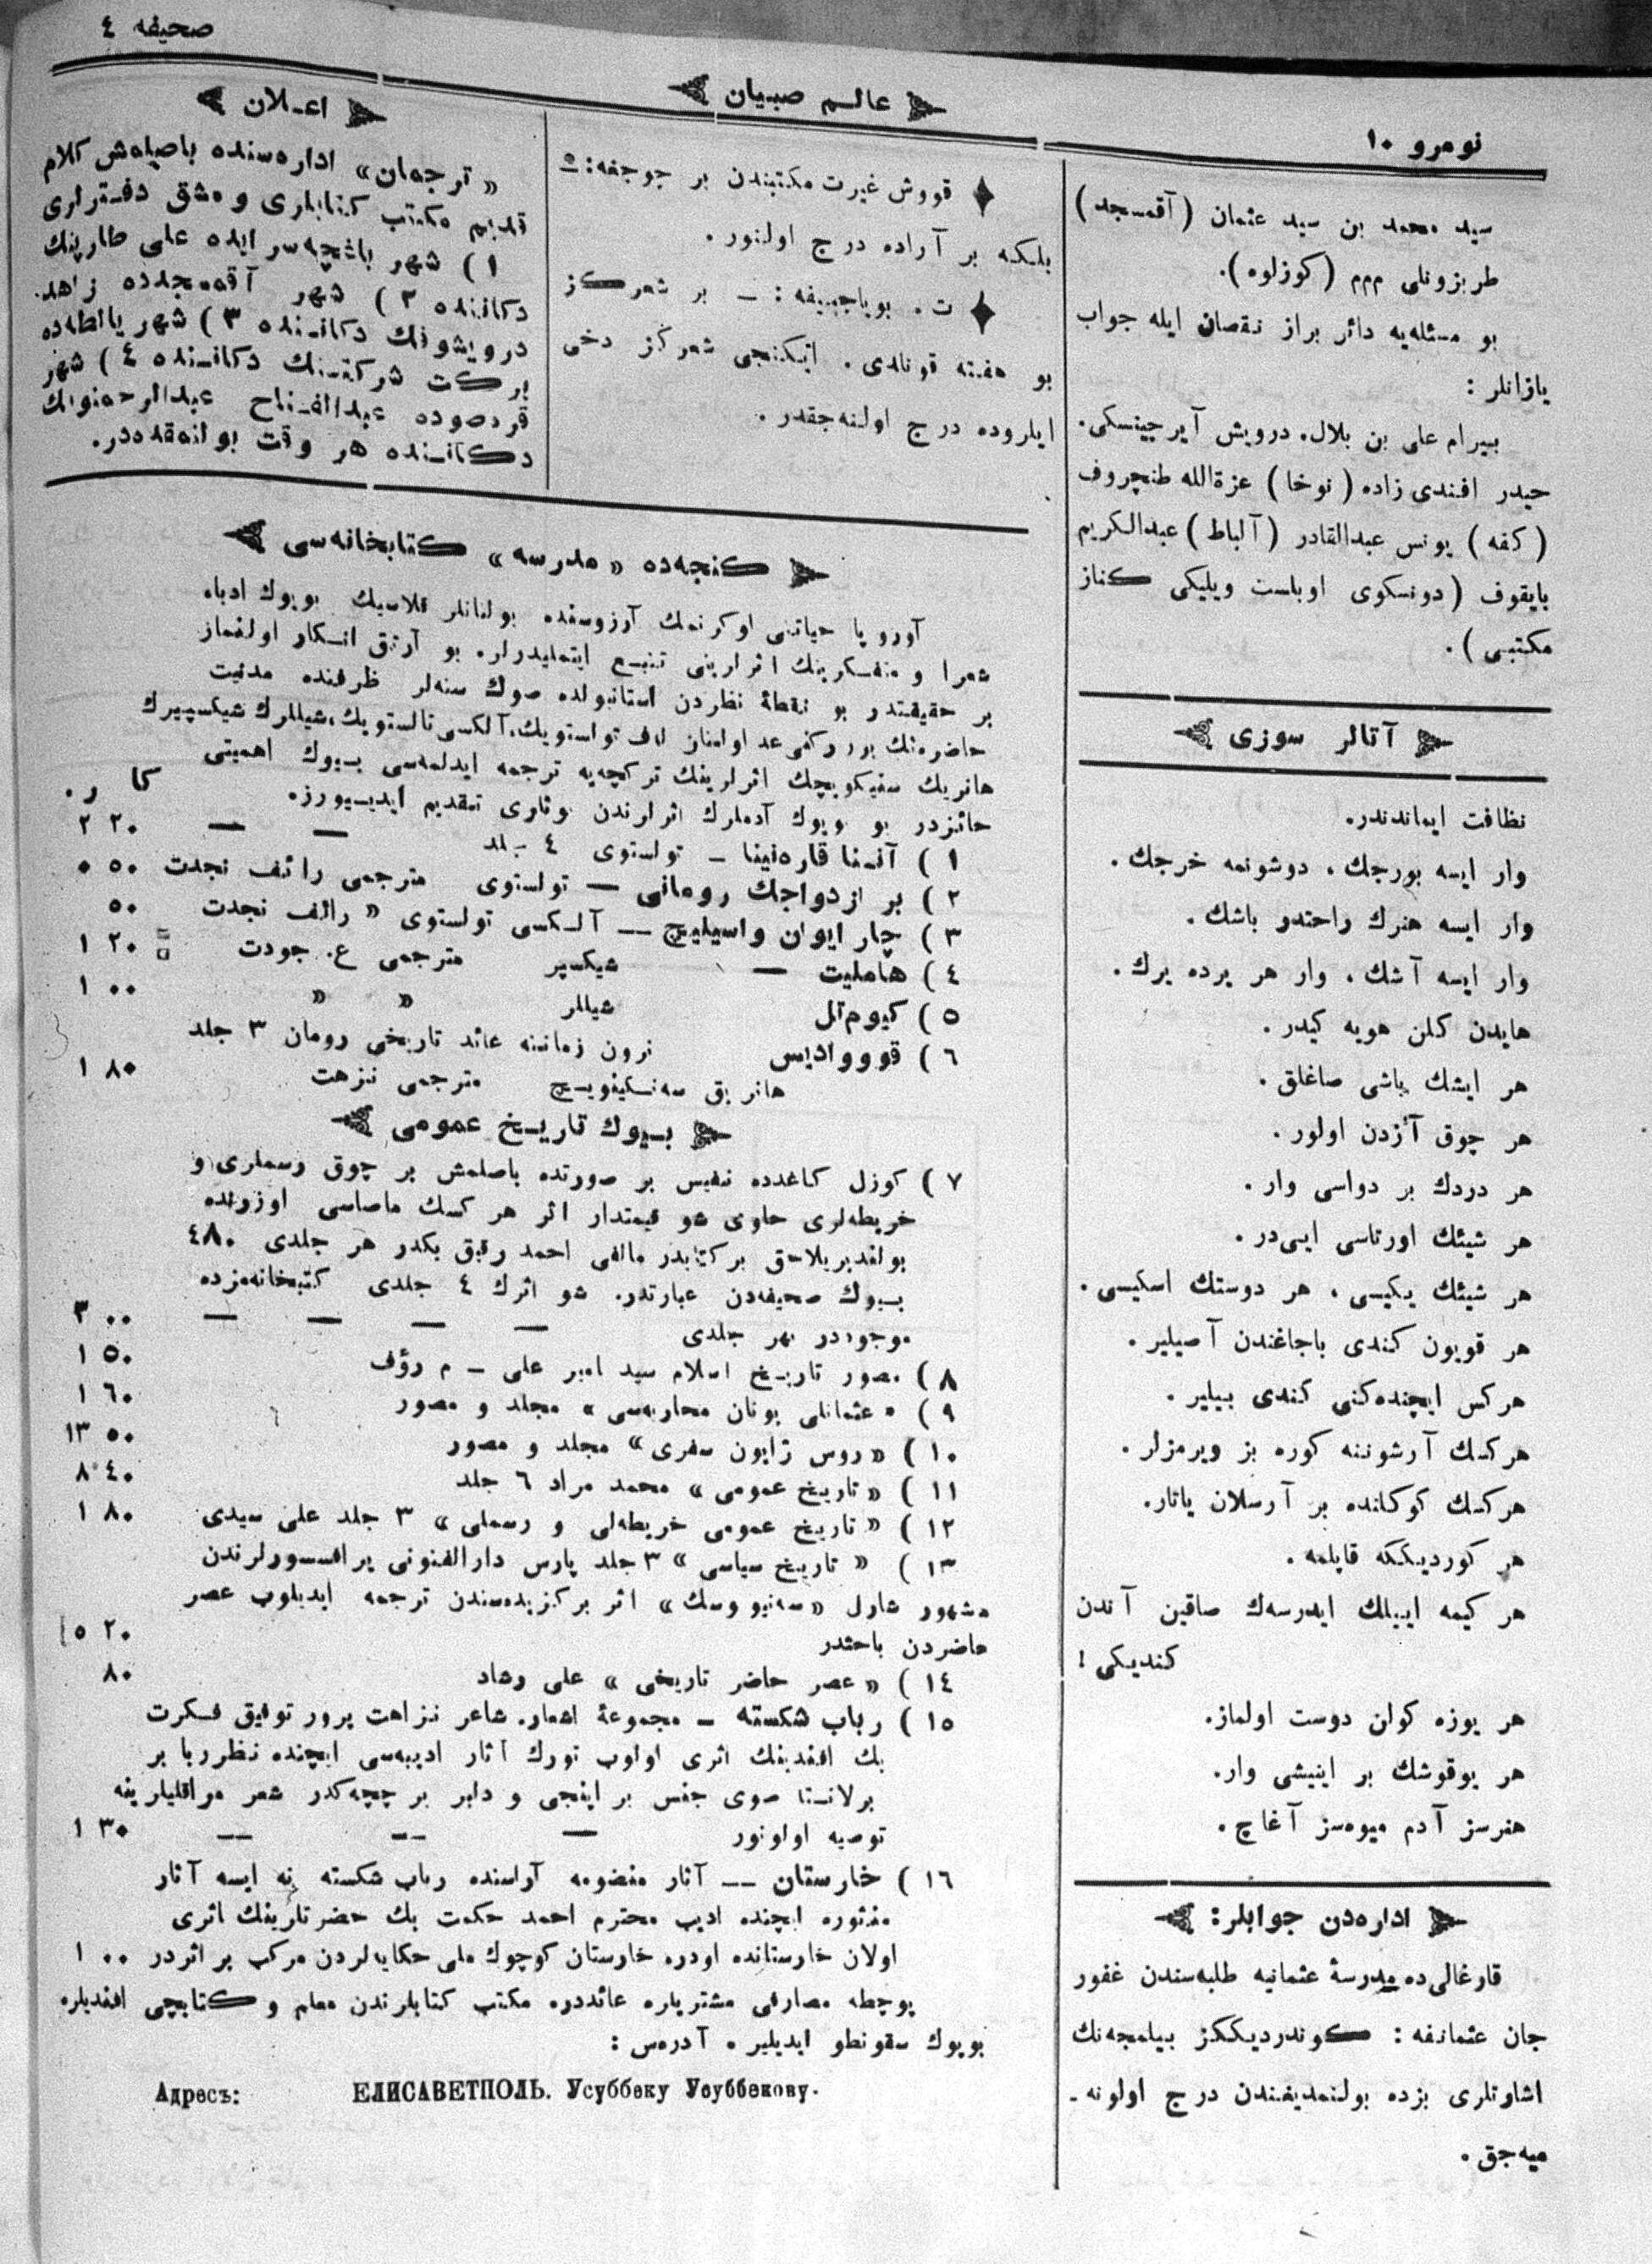 صحیفه ٤
عالم صبیان
نومرو ١٠
سید محمد بن سید عثمان (آقمسجد)
طربزونلی ممم (كوزلوه).
بو مسئله‌یه دائر براز نقصان ایله جواب
یازانلر :
بیرام علی بن بلال. درویش آیرجینسكی.
حیدر افندی زاده (نوخا) عزةالله طنچروف
(كفه) یونس عبدالقادر (آلباط) عبدالكریم
بایقوف (دونسكوی اوبلست ویلیكی كناز
مكتبی).
آتالر سوزی
نظافت ایماندندر.
وار ایسه بورجك، دوشونمه خرجك.
وار ایسه هنرك راحتدو باشك.
وار ایسه آشك، وار هر یرده یرك.
هایدن كلن هویه كیدر.
هر ایشك باشی صاغلق.
هر چوق آزدن اولور.
هر دردك بر دواسی وار.
هر شیئك اورتاسی ایی‌در.
هر شیئك یكیسی، هر دوستك اسكیسی.
هر قویون كندی باجاغندن آصیلیر.
هركس ایچنده‌كنی كندی بیلیر.
هركسك آرشوننه كوره بز ویرمزلر.
هركسك كوكلنده بر آرسلان یاتار.
هر كوردیككه قاپلمه.
هر كیمه اییلك ایدرسه‌ك صاقین آندن
كندیكی !
هر یوزه كولن دوست اولماز.
هر یوقوشك بر اینیشی وار.
هنرسز آدم میوه‌سز آغاچ.
اداره‌دن جوابلر:
قارغالی‌ده مدرسهٔ عثمانیه طلبه‌سندن غفور
جان عثمانفه : كوندردیككز بیلمجه‌نك
اشارتلری بزده بولنمدیغندن درج اولونه‌ـ
میه‌جق.
قووش غیرت مكتبندن بر جوجغه: ـ
بلكه بر آراده درج اولنور.
ت. بویاجییفه : ـ بر شعركز
بو هفته قونلدی. ایكنجی شعركز دخی
ایلروده درج اولنه‌جقدر.
اعلان
«ترجمان» اداره‌سنده باصیلمش كلام
قدیم مكتب كتابلری و مشق دفترلری
١) شهر باغچه‌سرایده علی طارپینك
دكاننده ٢) شهر آقمسجدده زاهد
درویشوفك دكاننده ٣) شهر یالطه‌ده
بركت شركتنك دكاننده ٤) شهر
قره‌صوده عبدالفتاح عبدالرحمنوفك
دكاننده هر وقت بولنمقده‌در.
كنجه‌ده «مدرسه» كتابخانه‌سی
آوروپا حیاتنی اوكرنمك آرزوسنده بولنانلر قلاسیك بویوك ادباء
شعرا و متفكرینك اثرلرینی تتبع ایتملیدرلر. بو آرتق انكار اولنماز
بر حقیقتدر بو نقطهٔ نظردن استانبولده صوك سنه‌لر ظرفنده مدنیت
حاضره‌نك بور ركنی عد اولنان لف تولستویك، آلكسی تالستویك، شیللرك شیكسپیرك
هانریك سنیكویچك اثرلرینك تركچه‌یه ترجمه ایدلمه‌سی بیوك اهمیتی
حائزدر بو بیوك آدملرك اثرلرندن بونلری تقدیم ایدییورز.
كا ر.
١) آننا قاره‌نینا ـ تولستوی ٤ جلد — — ٢٠ ٢
٢) بر ازدواجك رومانی — تولستوی مترجمی رائف نجدت ٥٠ ٠
٣) چار ایوان واسیلییچ — آلكسی تولستوی « رائف نجدت ٥٠
٤) هاملیت — شیكسپر مترجمی ع. جودت ٢٠ ١
٥) كیوم‌تل شیللر » » ٠٠ ١
٦) قووادیس نرون زماننه عائد تاریخی رومان ٣ جلد
هانریق سه‌نسكیفویچ مترجمی نزهت ٨٠ ١
بیوك تاریخ عمومی
٧) كوزل كاغدده نفیس بر صورتده باصلمش بر چوق رسملری و
خریطه‌لری حاوی شو قیمتدار اثر هر كسك ماصاسی اوزرنده
بولندیریلاجق بركتابدر مالفی احمد رفیق بكدر هر جلدی ٤٨٠
بیوك صحیفه‌دن عبارتدر. شو اثرك ٤ جلدی كتبخانه‌مزده
موجوددر بهر جلدی — — — — ٠٠ ٣
٨) مصور تاریخ اسلام سید امیر علی ـ م رؤف ٥٠ ١
٩) «عثمانلی یونان محاربه‌سی» مجلد و مصور ٦٠ ١
١٠) «روس ژاپون سفری» مجلد و مصور ٥٠ ١٣
١١) «تاریخ عمومی» محمد مراد ٦ جلد ٤٠ ٨
١٢) «تاریخ عمومی خریطه‌لی و رسملی» ٣ جلد علی سیدی ٨٠ ١
١٣) «تاریخ سیاسی» ٣ جلد پارس دارالفنونی پرافسسورلرندن
مشهور شارل «سه‌نیوبوسك» اثر بركزیده‌سندن ترجمه ایدیلوب عصر
حاضردن باحثدر ٢٠ ٥
١٤) «عصر حاضر تاریخی» علی رشاد ٨٠
١٥) رباب شكسته ـ مجموعهٔ اشعار. شاعر نزاهت پرور توفیق فكرت
بك افندینك اثری اولوب تورك آثار ادبیه‌سی ایچنده نظرربا بر
برلانتا صوی جنس بر اینجی و دلبر بر چچه‌كدر شعر مراقلیلرینه
توصیه اولونور — — — ٣٠ ١
١٦) خارستان — آثار منضومه آراسنده رباب شكسته نه ایسه آثار
منثوره ایچنده ادیب محترم احمد حكمت بك حضرتلرینك اثری
اولان خارستانده اودر. خارستان كوچوك ملی حكایه‌لردن مركب بر اثردر ٠٠ ١
پوچطه مصارفی مشتریلره عائددر. مكتب كتابلرندن معلم و كتابچی افندیلره
بویوك سقونطو ایدیلیر. آدرس :
Адресъ: ЕЛИСАВЕТПОЛЬ. Усуббеку Усуббекову.